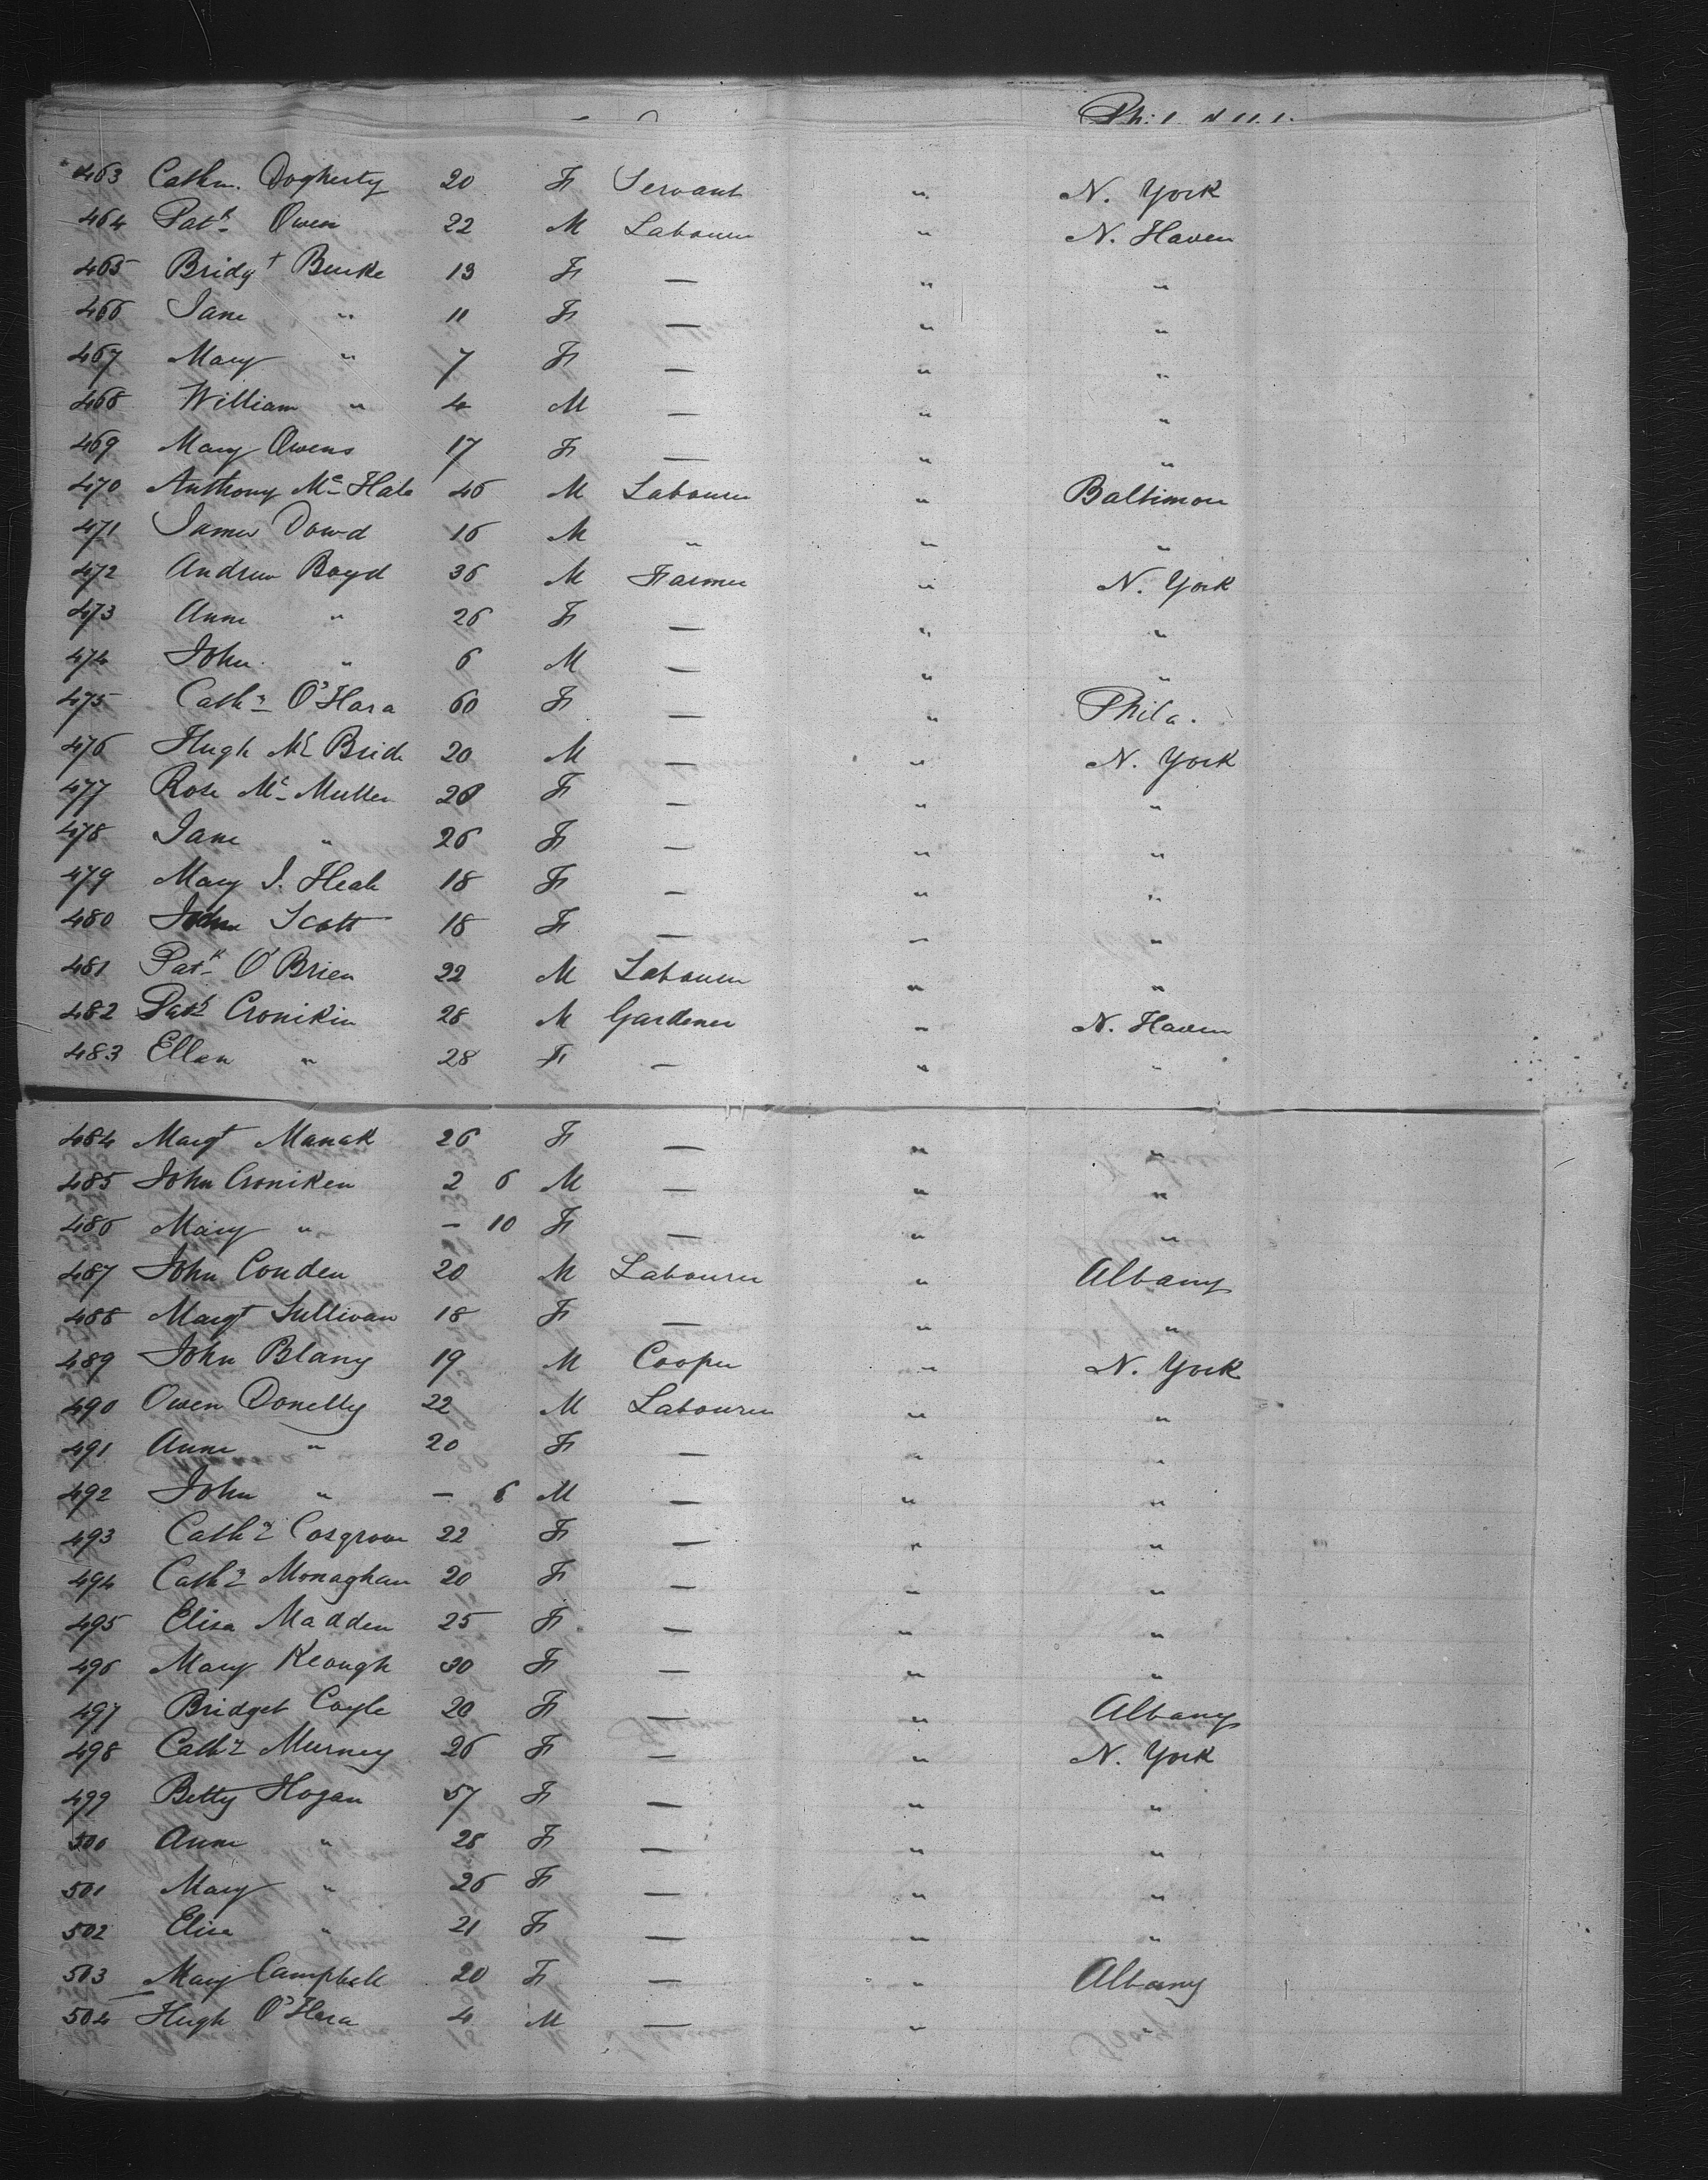 463 Cathn. Dogherty 20 F Servant " N. York
464 Patk Owen 22 M Labourer " N. Haven
465 Bridgt Burke 13 F — " "
466 Jane " 11 F — " "
467 Mary " 7 F — " "
468 William " 4 M — " "
469 Mary Owens 17 F — " "
470 Anthony Mc Hale 46 M Labourer " Baltimore
471 James Dowd 16 M " " "
472 Andrew Boyd 36 M Farmer " N. York
473 Anne " 26 F — " "
474 John " 6 M — " "
475 Cathn O'Hara 60 F — " Phila.
476 Hugh Mc Bride 20 M — " N. York
477 Rose Mc Mullen 28 F — " "
478 Jane " 26 F — " "
479 Mary J. 18 F — " "
480 Scott 18 F — " "
481 Patk O'Brien 22 M Labourer " "
482 Patk Cronikin 28 M Gardener " N. Haven
483 Ellen " 28 F — " "
484 Margt Manak 26 F — " "
485 John Croniken 2 6 M — " "
486 Mary " — 10 F — " "
487 John Conden 20 M Labourer " Albany
488 Margt Sullivan 18 F — " "
489 John Blany 19 M Cooper " N. York
490 Owen Donelly 22 M Labourer " "
491 Anne " 20 F — " "
492 John " — 6 M — " "
493 Cathn Cosgrove 22 F — " "
494 Cathn Monaghan 20 F — " "
495 Eliza Madden 25 F — " "
496 Mary Keough 30 F — " "
497 Bridget Coyle 20 F — " Albany
498 Cathn Murney 26 F — " N. York
499 Betty Hogan 57 F — " "
500 Anne " 28 F — " "
501 Mary " 26 F — " "
502 Eliza " 21 F — " "
503 Mary Campbell 20 F — " Albany
504 Hugh O'Hara 4 M — " "